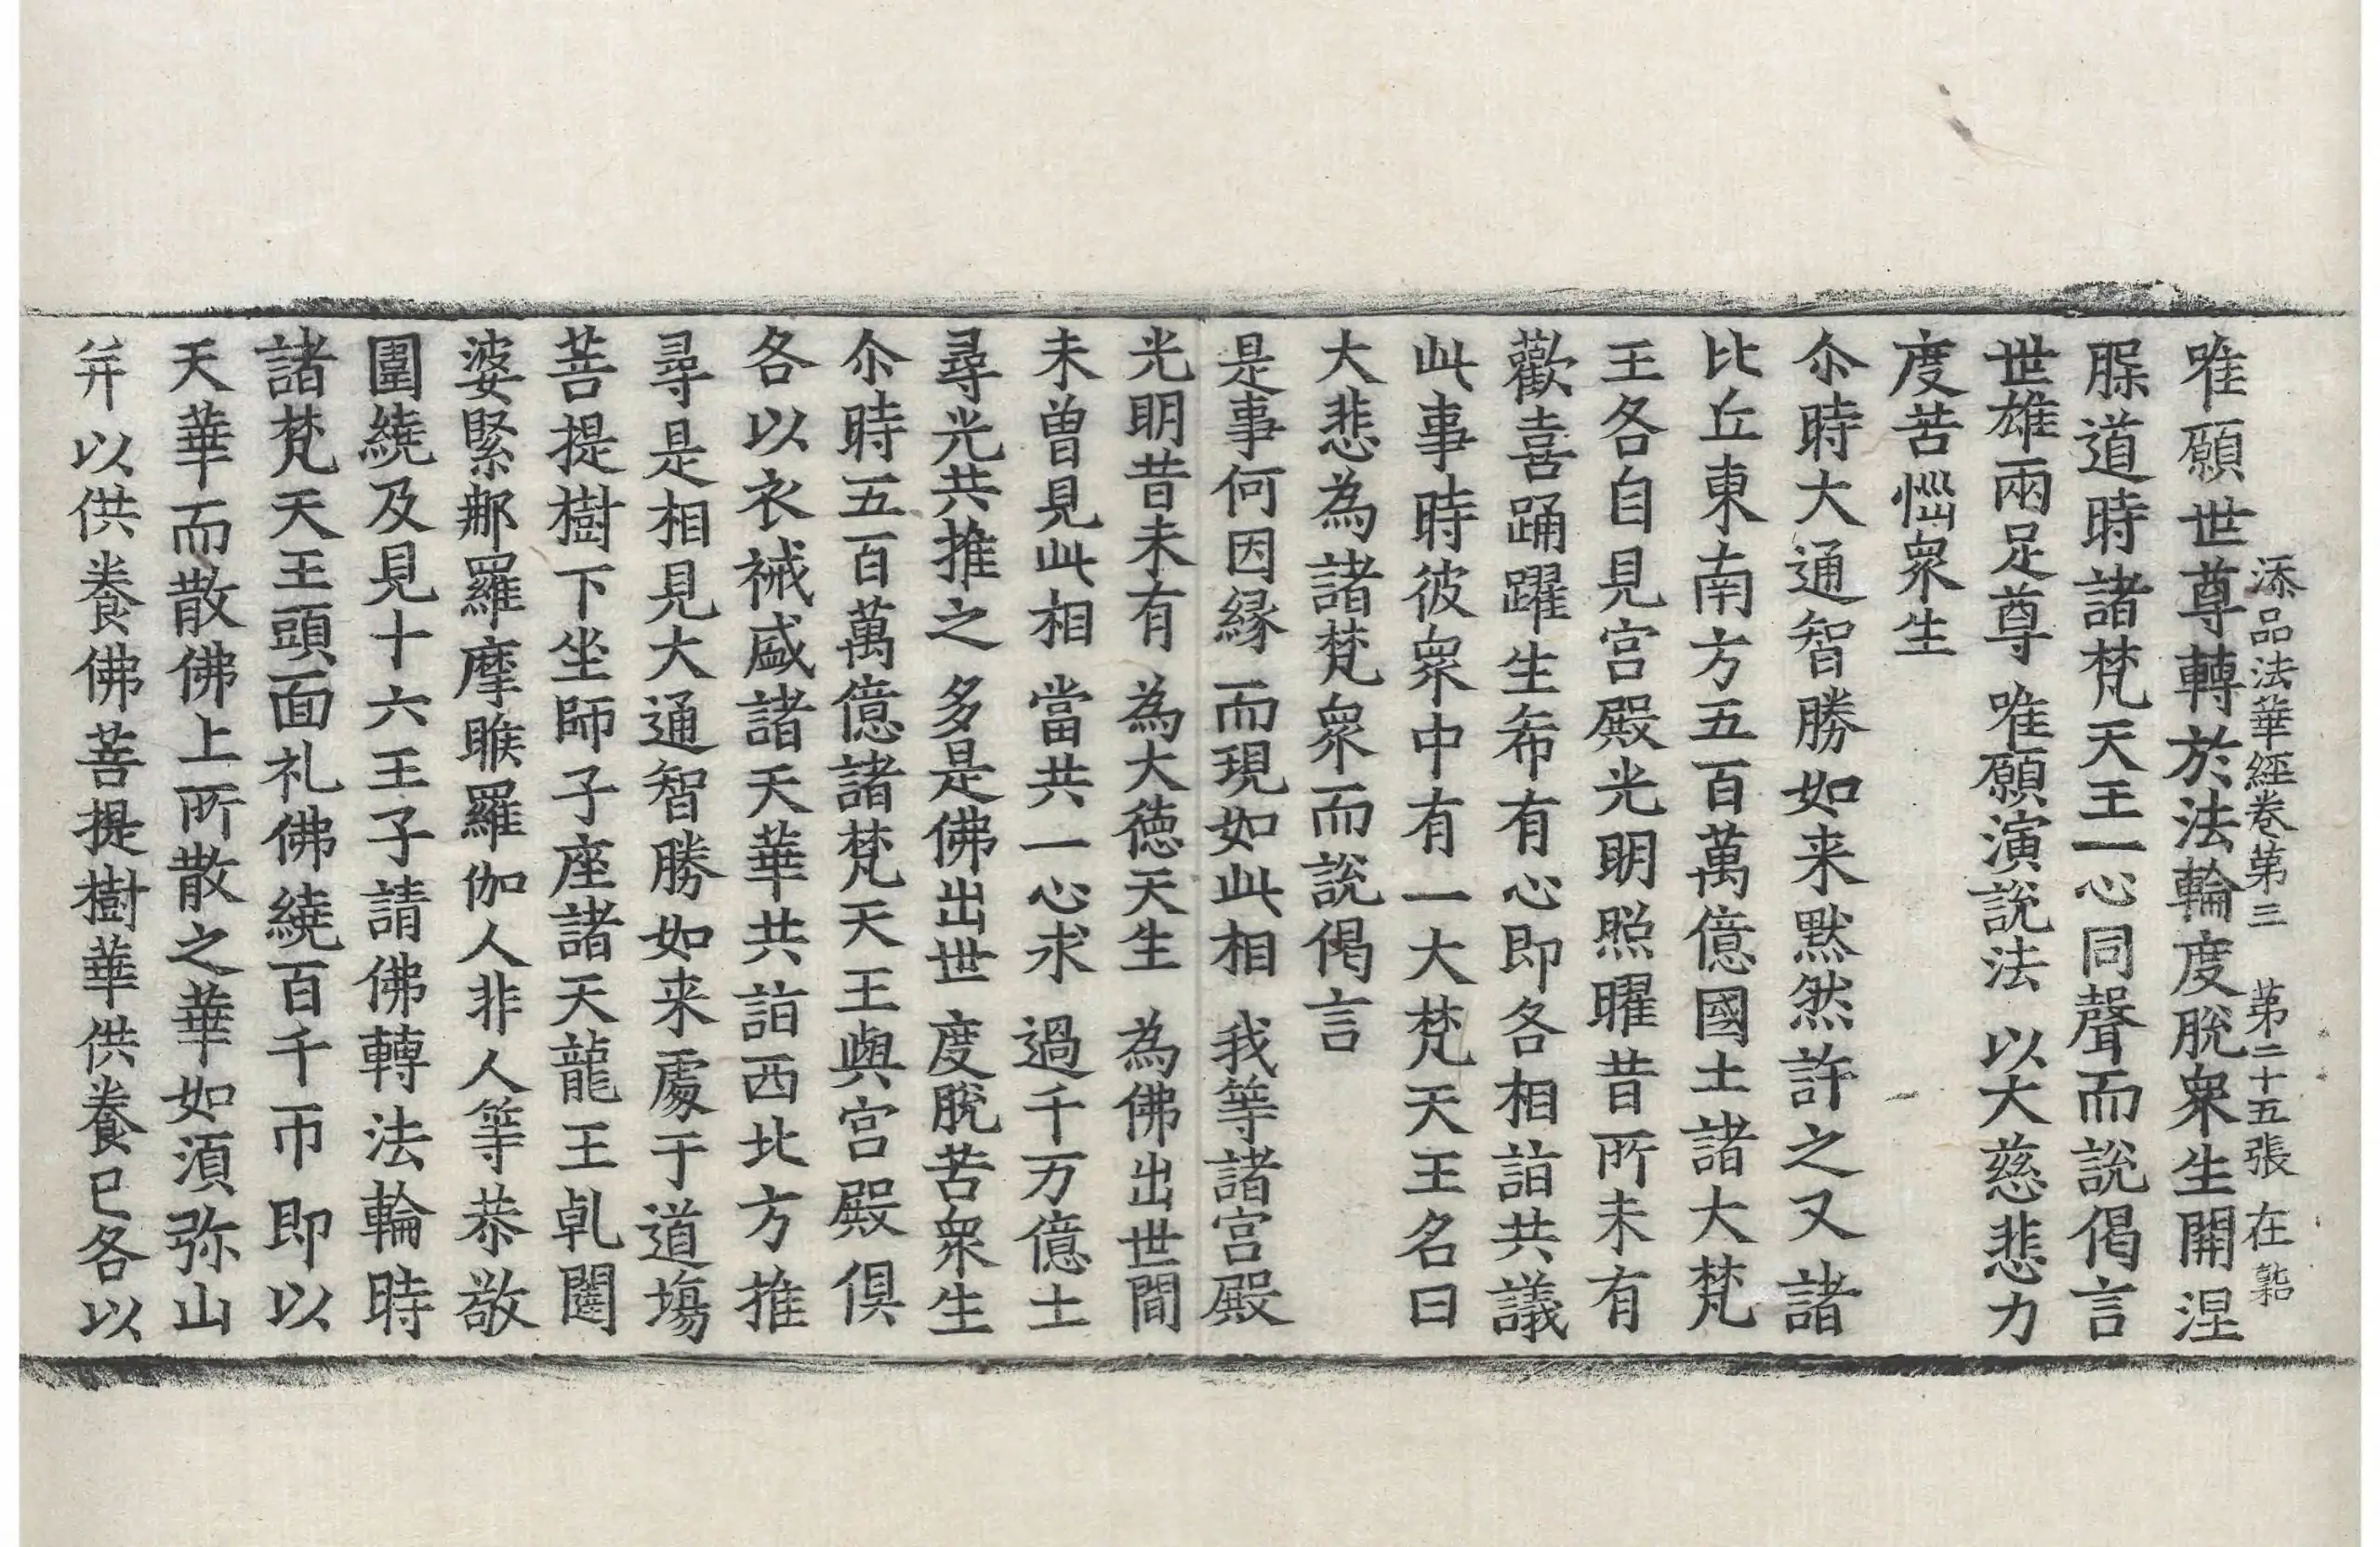 唯願世尊轉於法輪度脫衆生開涅
添品法華經卷第三 第二十五張 在
腂道時諸梵天王一心同聲而說偈言
世雄兩足尊 唯願演說法 以大慈悲力
度苦惱衆生
尒時大通智勝如来黙然許之又諸
比丘東南方五百萬億國土諸大梵
王各自見宫殿光明照曜昔所未有
歡喜踊躍生希有心即各相詣共議
此事時彼衆中有一大梵天王名曰
大悲為諸梵衆而說偈言
是事何因緣 而現如此相 我等諸宫殿
光明昔未有 為大徳天生 為佛出世間
未曾見此相 當共一心求 過千万億土
尋光共推之 多是佛出世 度脫苦衆生
尒時五百萬億諸梵天王與宫殿俱
各以衣祴盛諸天華共詣西北方推
尋是相見大通智勝如来處于道塲
菩提樹下坐師子座諸天龍王乹闥
婆緊那羅摩睺羅伽人非人等恭敬
圍繞及見十六王子請佛轉法輪時
諸梵天王頭面礼佛繞百千帀即以
天華而散佛上所散之華如湏弥山
并以供養佛菩提樹華供養已各以